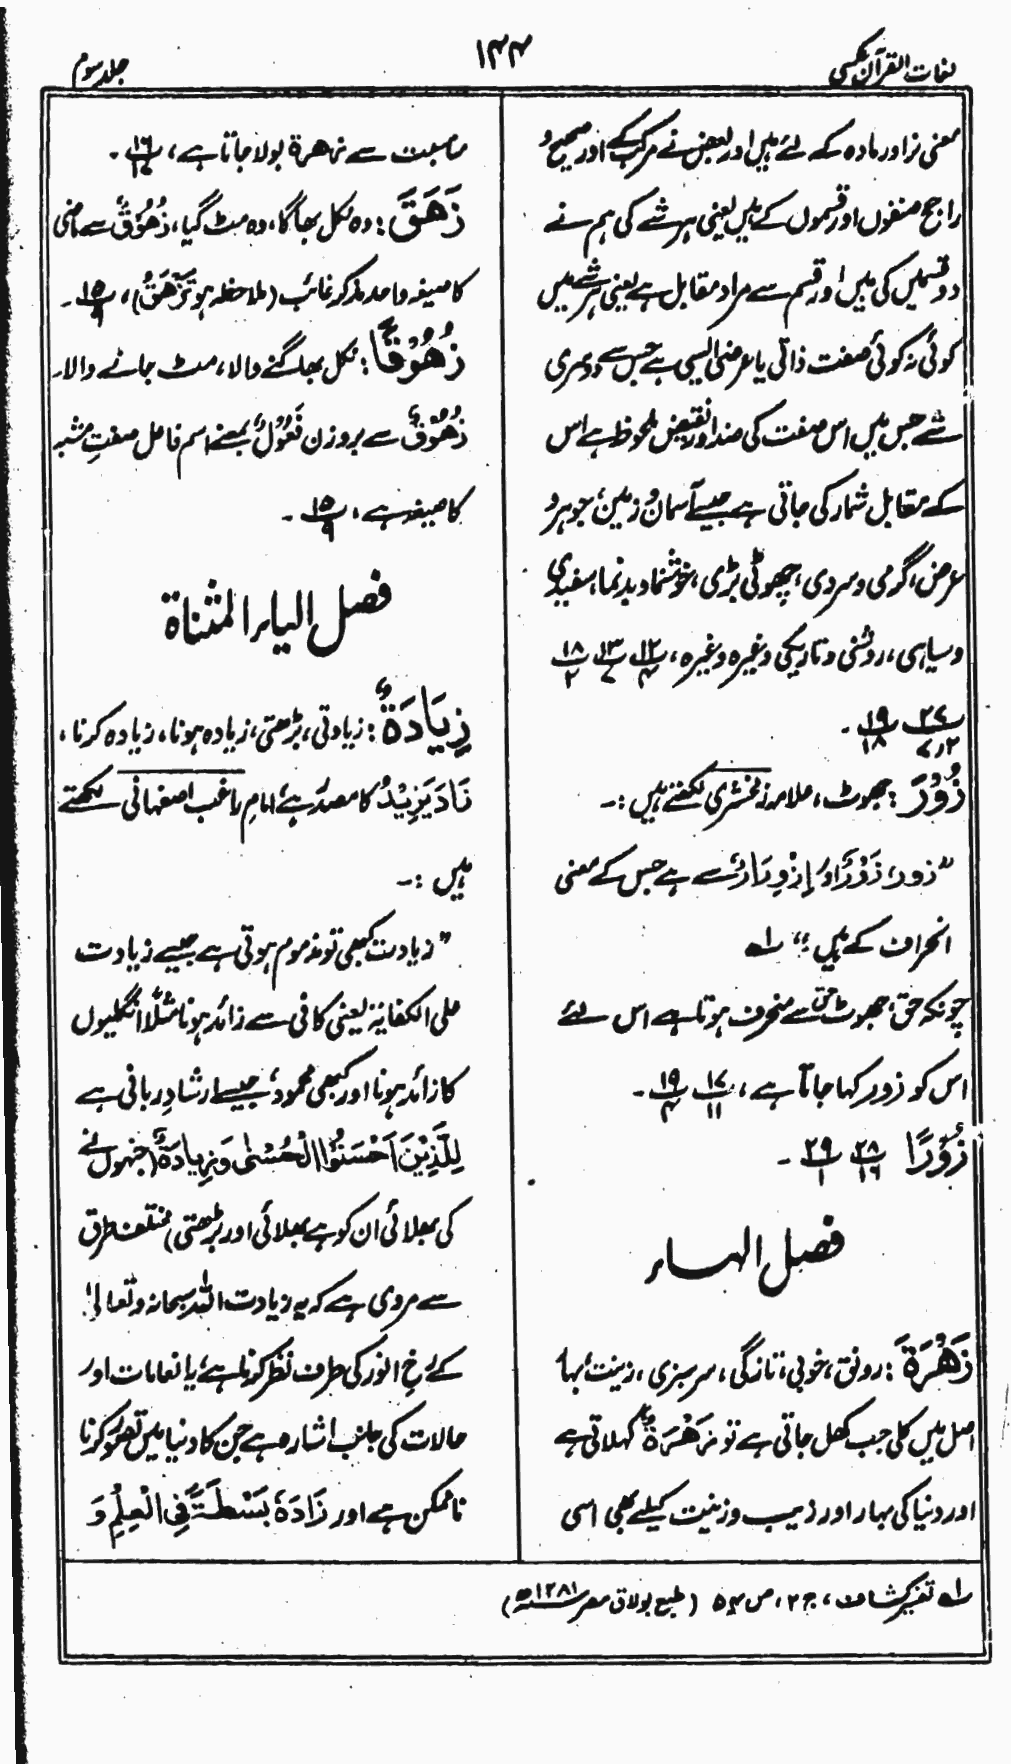 لغات القرآن عکسی
۱۴۴
جلد سوم
معنی نر اور مادہ کے لئے ہیں اور بعض نے مرکب کے اور صحیح و
راجح صنفوں اور قسموں کے ہیں یعنی ہر شے کی ہم نے
دو قسمیں کی ہیں اور قسم سے مراد مقابل ہے یعنی ہر شے میں
کوئی نہ کوئی صفت ذاتی یا عرضی ایسی ہے جس سے دوسری
شے جس میں اس صفت کی ضد اور نقیض ملحوظ ہے اس
کے مقابل شمار کی جاتی ہے جیسے آسمان و زمین، جوہر و
عرض، گرمی و سردی، چھوٹی بڑی، خوشنما و بدنما، سفیدی
و سیاہی، روشنی و تاریکی وغیرہ وغیرہ، ۱۲/۴ ۱۳/۷ ۱۸/۲
۲۷/۷،۲ ۱۹/۱۸ ۔
زُوْرَ : جھوٹ، علامہ زمخشری لکھتے ہیں :۔
”زور، زَوْرٌ اور اِزْوِرَارٌ سے ہے جس کے معنی
انحراف کے ہیں“ ؛ لہ
چونکہ حق، جھوٹ حق سے منحرف ہوتا ہے اس لئے
اس کو زور کہا جاتا ہے، ۱۷/۱۱ ۱۹/۴ ۔
زُوْرًا ۲۸/۱۶ ۲۹/۱ ۔
فصل الہاء
زَھْرَةَ : رونق، خوبی، تازگی، سرسبزی، زینت، بہار
اصل میں کلی جب کھل جاتی ہے تو زَھْرَةٌ کہلاتی ہے
اور دنیا کی بہار اور زیب و زینت کیلئے بھی اسی
مناسبت سے زھرة بولا جاتا ہے، ۱۶/۱۷ ۔
زَھَقَ : وہ نکل بھاگا، وہ مٹ گیا، زُھُوْقٌ سے ماضی
کا صیغہ واحد مذکر غائب (ملاحظہ ہو تَزْھَقُ)، ۱۵/۹ ۔
زَھُوْقًا : نکل بھاگنے والا، مٹ جانے والا۔
زُھُوْقٌ سے بروزن فَعُوْلٌ بمعنے اسم فاعل صفتِ مشبہ
کا صیغہ ہے، ۱۵/۹ ۔
فصل الیاء المثناة
زِیَادَةٌ : زیادتی، بڑھتی، زیادہ ہونا، زیادہ کرنا،
زَادَ یَزِیْدُ کا مصدر ہے، امام راغب اصفہانی لکھتے
ہیں :۔
” زیادت کبھی تو مذموم ہوتی ہے جیسے زیادت
علی الکفایۃ یعنی کافی سے زائد ہونا مثلًا انگلیوں
کا زائد ہونا اور کبھی محمود، جیسے ارشادِ ربانی ہے
لِلَّذِیْنَ اَحْسَنُوا الْحُسْنٰی وَ زِیَادَةٌ (جنہوں نے
کی بھلائی ان کو ہے بھلائی اور بڑھتی) مختلف طرق
سے مروی ہے کہ یہ زیادت اللہ سبحانہ وتعالیٰ
کے رُخِ انور کی طرف نظر کرنا ہے، یا انعامات اور
حالات کی جانب اشارہ ہے جن کا دنیا میں تصور کرنا
ناممکن ہے اور زَادَهٗ بَسْطَةً فِی الْعِلْمِ وَ
لہ تفسیر کشاف، ج ۲، ص ۵۴ (طبع بولاق مصر ۱۲۸۱ھ)